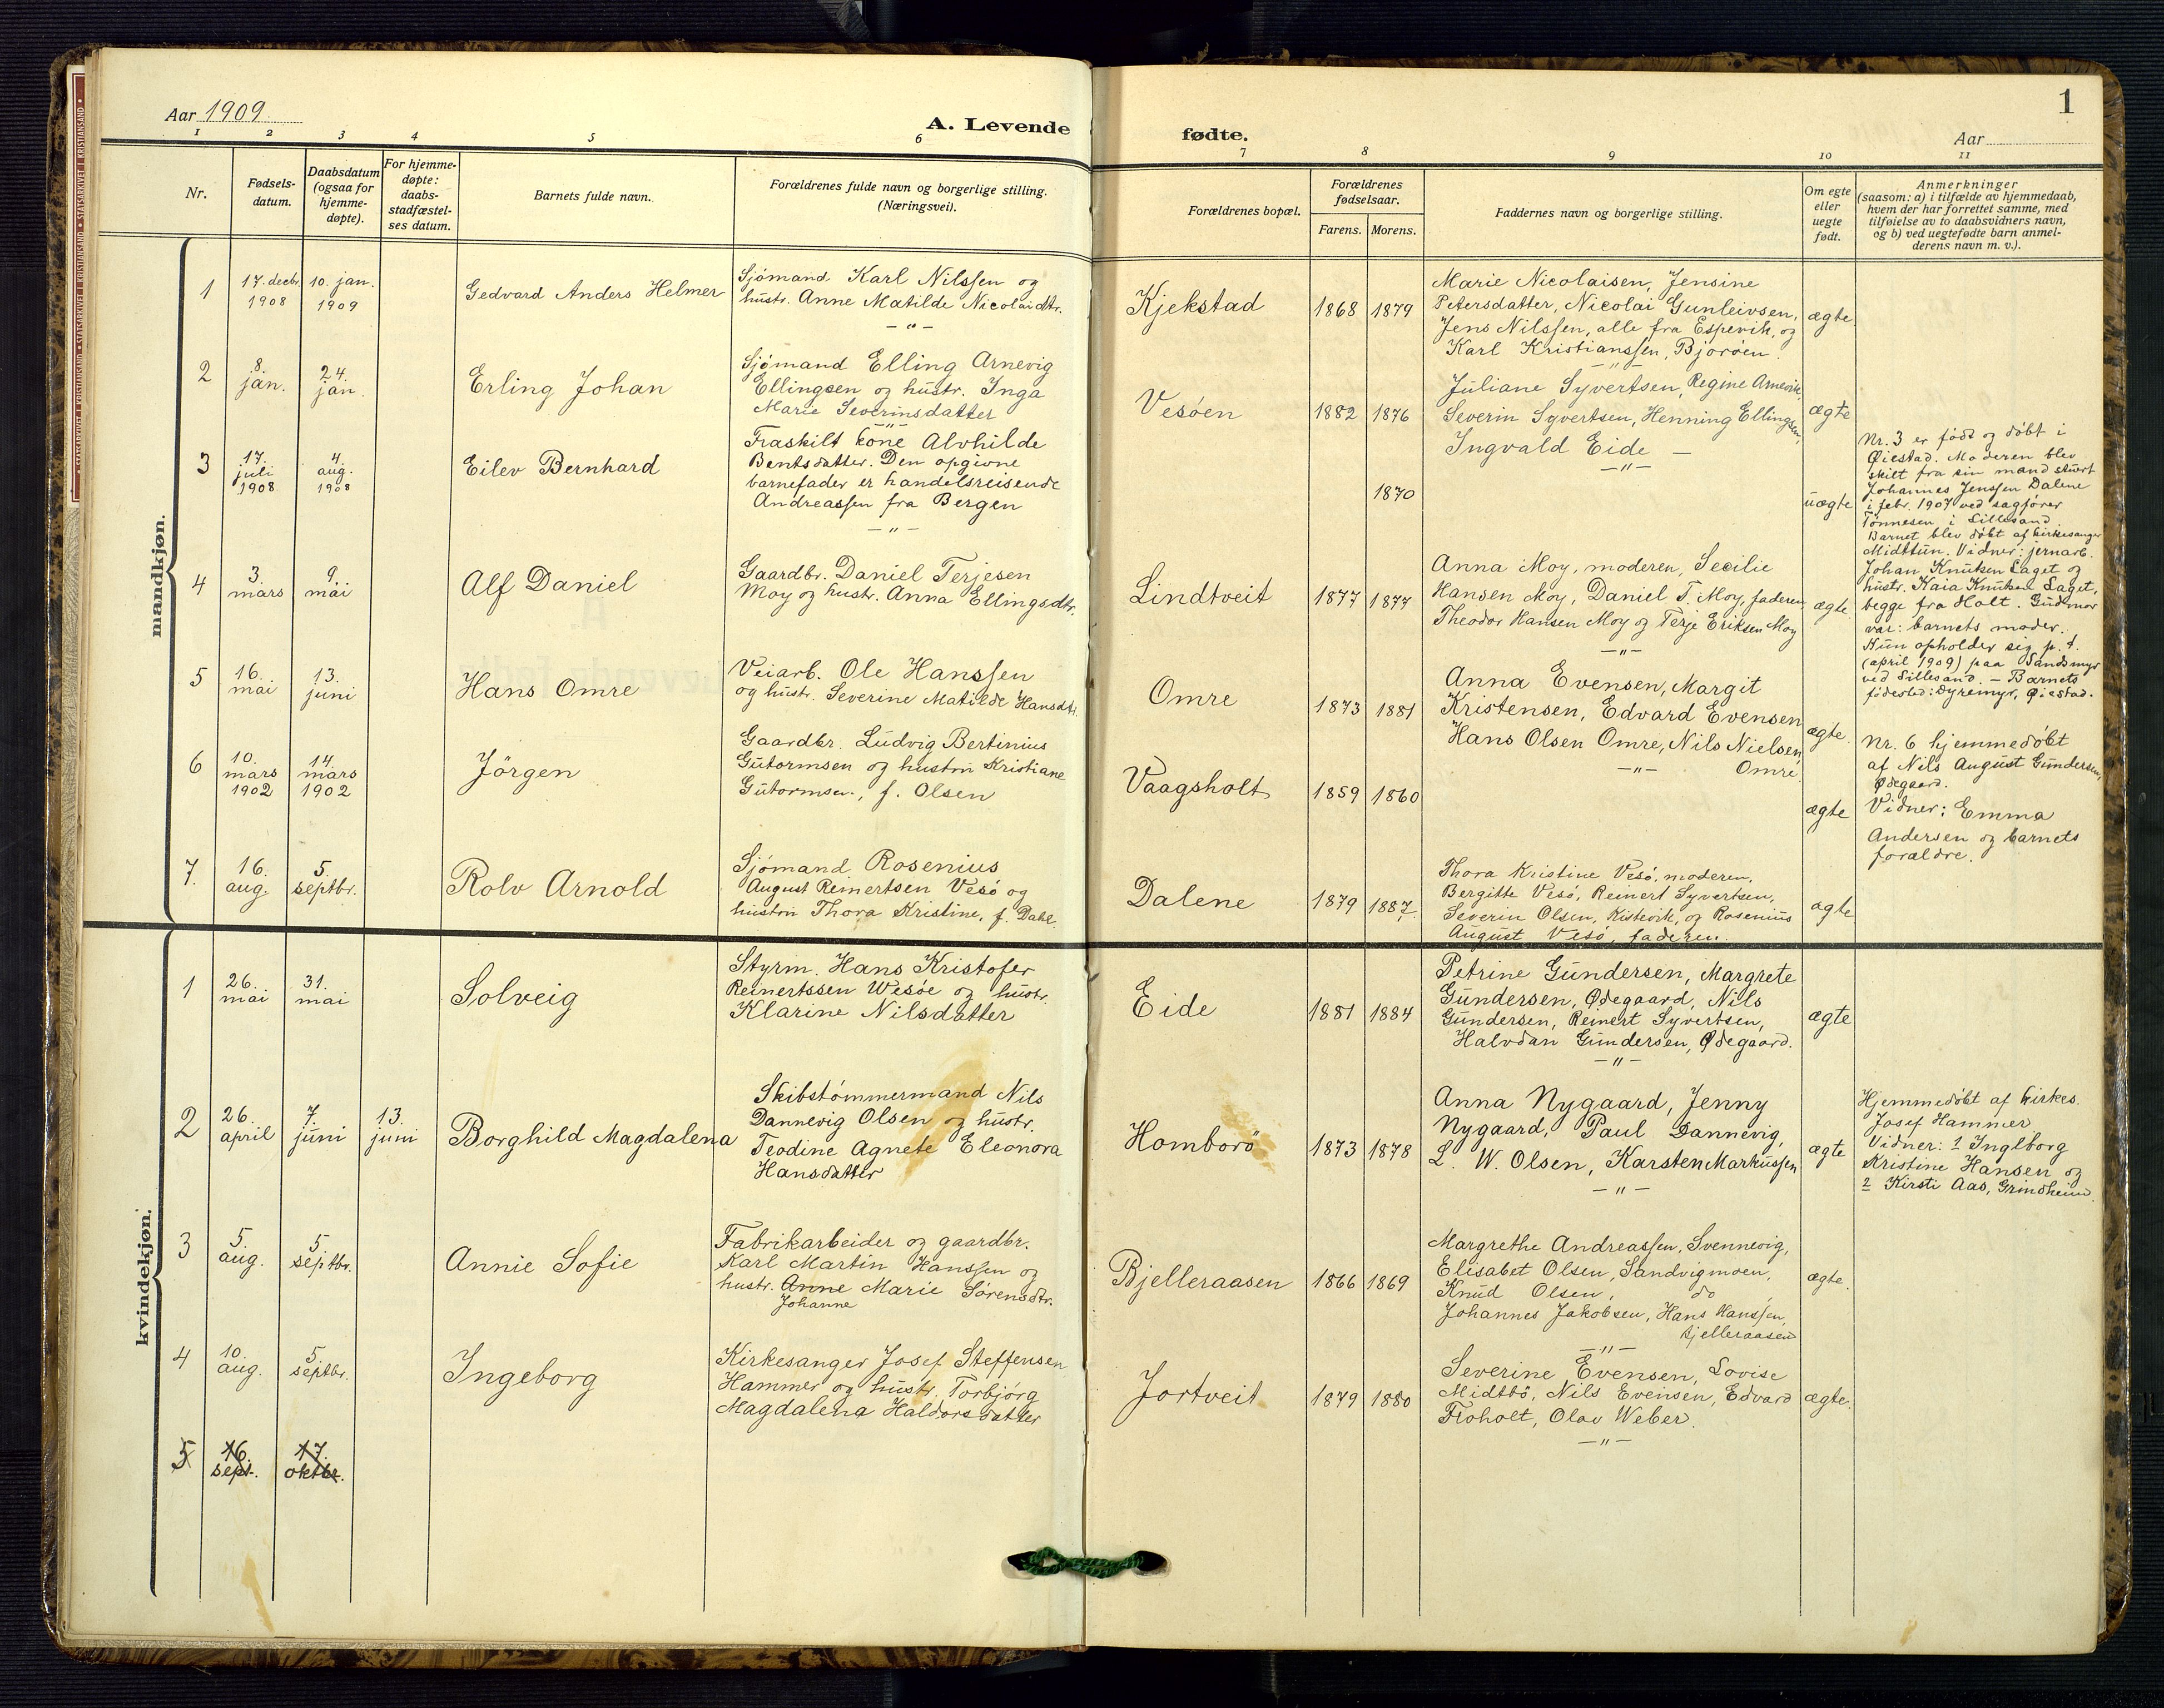 1
Aar 1909.
A. Levende
fødte.
Aar
1 2 3 4 5 6 7 8 9 10 11
Nr.
Fødsels-
datum.
Daabsdatum
(ogsaa for
hjemme-
døpte).
For hjemme-
døpte:
daabs-
stadfæstel-
ses datum.
Barnets fulde navn.
Forældrenes fulde navn og borgerlige stilling.
(Næringsvei).
Forældrenes bopæl.
Forældrenes
fødselsaar.
Farens. Morens.
Faddernes navn og borgerlige stilling.
Om egte
eller
uegte
født.
Anmerkninger
(saasom: a) i tilfælde av hjemmedaab,
hvem der har forrettet samme, med
tilføielse av to daabsvidners navn,
og b) ved uegtefødte barn anmel-
derens navn m. v.).
mandkjøn.
1
17. decbr.
1908
10. jan.
1909
Gedvard Anders Helmer
Sjömand Karl Nilssen og
hustr. Anne Matilde Nicolaidtr.
— " —
Kjekstad
1868 1879
Marie Nicolaisen, Jensine
Petersdatter, Nicolai Gunleivsen,
Jens Nilssen, alle fra Espevik, og
Karl Kristianssen, Bjoröen.
— " —
ægte.
2
8.
jan.
24.
jan.
Erling Johan
Sjömand Elling Arnevig
Ellingsen og hustr. Inga
Marie Severinsdatter
— " —
Vesöen
1882 1876
Juliane Syvertsen, Regine Arnevik,
Severin Syvertsen, Henning Ellingsen,
Ingvald Eide —
— " —
ægte
3
17.
juli
1908
4.
aug.
1908
Eilev Bernhard
Fraskilt kone Alvhilde
Bentsdatter. Den opgivne
barnefader er handelsreisende
Andreassen fra Bergen
— " —
1870
uægte
Nr. 3 er födt og döbt i
Øiestad. Moderen blev
skilt fra sin mand stuert
Johannes Jenssen Dalene
i febr. 1907 ved sagförer
Tönnesen i Lillesand.
Barnet blev döbt af kirkesanger
Midttun. Vidner: jernarb.
Johan Knutsen Laget og
hustr. Kaia Knutsen Laget,
begge fra Holt. Gudmor
var: barnets moder.
Hun opholder sig p. t.
(april 1909) paa Sandsmyr
ved Lillesand. — Barnets
födested: Dyremyr, Øiestad.
4
3.
mars
9.
mai
Alf Daniel
Gaardbr. Daniel Terjesen
Moy og hustr. Anna Ellingsdtr.
Lindtveit
1877 1877
Anna Moy, moderen, Secilie
Hansen Moy, Daniel T. Moy, faderen,
Theodor Hansen Moy og Terje Eriksen Moy
— " —
ægte.
5
16.
mai
13.
juni
Hans Omre
Veiarb. Ole Hanssen
og hustr. Severine Matilde Hansdtr.
Omre
1873 1881
Anna Evensen, Margit
Kristensen, Edvard Evensen
Hans Olsen Omre, Nils Nielsen,
— " — Omre.
ægte.
6
10.
mars
1902
14.
mars
1902
Jörgen
Gaardbr. Ludvig Bertinius
Gutormsen og hustru Kristiane
Gutormsen, f. Olsen
Vaagsholt
1859 1860
ægte
Nr. 6 hjemmedöbt
af Nils August Gundersen,
Ødegaard.
Vidner: Emma
Andersen og barnets
forældre.
7.
16.
aug.
5.
septbr.
Rolv Arnold
Sjömand Rosenius
August Reinertsen Vesö og
hustru Thora Kristine, f. Dahl.
Dalene
1879 1887.
Thora Kristine Vesö, moderen,
Bergitte Vesö, Reinert Syvertsen,
Severin Olsen, Kistevik, og Rosenius
August Vesö, faderen.
ægte
kvindekjøn.
1
26.
mai
31.
mai
Solveig
Styrm. Hans Kristofer
Reinertssen Wesöe og hustr.
Klarine Nilsdatter
Eide
1881 1884
Petrine Gundersen, Margrete
Gundersen, Ødegaard, Nils
Gundersen, Reinert Syvertsen,
Halvdan Gundersen, Ødegaard.
— " —
ægte
2
26.
april
7.
juni
13.
juni
Borghild Magdalena
Skibstömmermand Nils
Dannevig Olsen og hustr.
Teodine Agnete Eleonora
Hansdatter
Homborö
1873 1878
Anna Nygaard, Jenny
Nygaard, Paul Dannevig,
L. W. Olsen, Karsten Markussen
— " —
ægte
Hjemmedöbt af kirkes.
Josef Hammer.
Vidner: 1 Inglborg
Kristine Hansen og
2 Kirsti Aas, Grindheim.
3
5.
aug.
5.
septbr.
Annie Sofie
Fabrikarbeider og gaardbr.
Karl Martin Hanssen og
hustr. Anne Marie Sörensdtr.
Johanne
Bjelleraasen
1866 1869
Margrethe Andreassen, Svennevig,
Elisabet Olsen, Sandvigmoen,
Knud Olsen, do,
Johannes Jakobsen, Hans Hanssen,
Bjelleraasen
— " —
ægte.
4
10.
aug.
5.
septbr.
Ingeborg
Kirkesanger Josef Steffensen
Hammer og hustr. Torbjörg
Magdalena Haldorsdatter
Jortveit
1879 1880
Severine Evensen, Lovise
Midtbö, Nils Evensen, Edvard
Froholt, Olav Weber.
— " —
ægte.
5
16.
sept.
17.
oktbr.